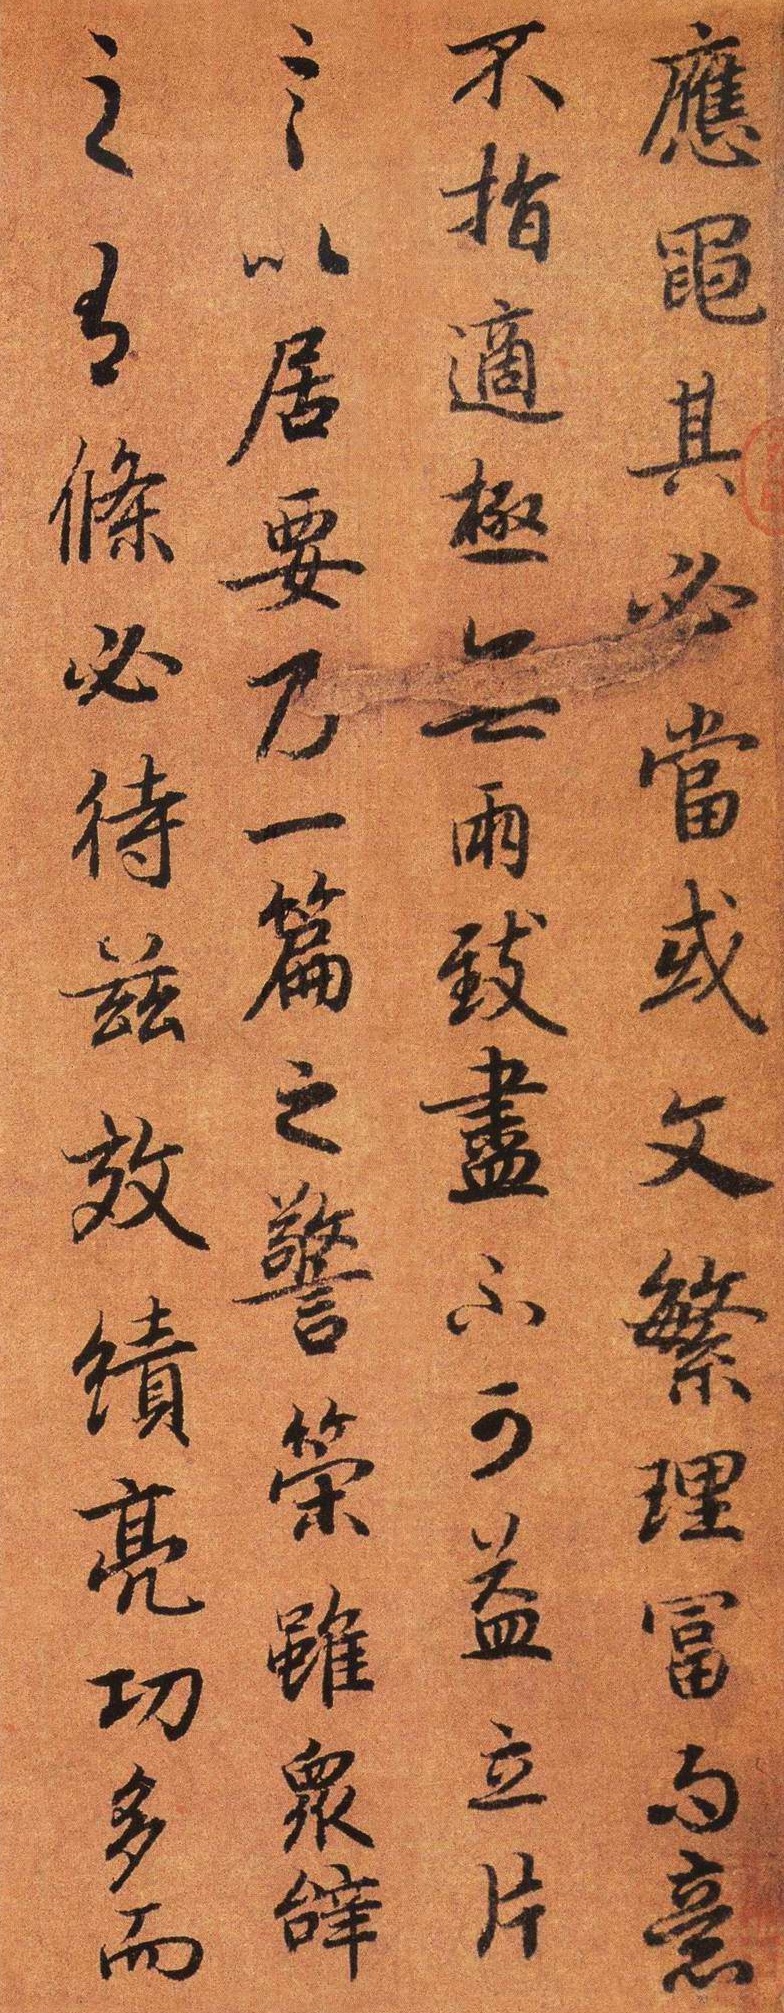 應黽其必當或文繁理富而意
不指適極無兩致盡不可益立片
言以居要乃一篇之警策雖眾辝
之有條必待茲效績亮功多而